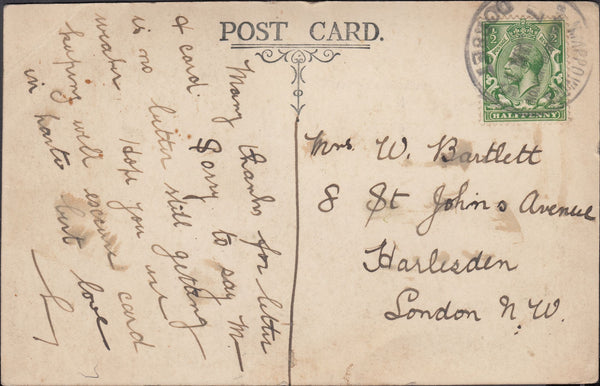 POST CARD.
Many thanks for letter
& card. Sorry to say M—
is no better still getting
weaker. Hope you are
keeping well excuse card
in haste best love
Mrs W. Bartlett
8 St Johns Avenue
Harlesden
London N.W.
HALFPENNY